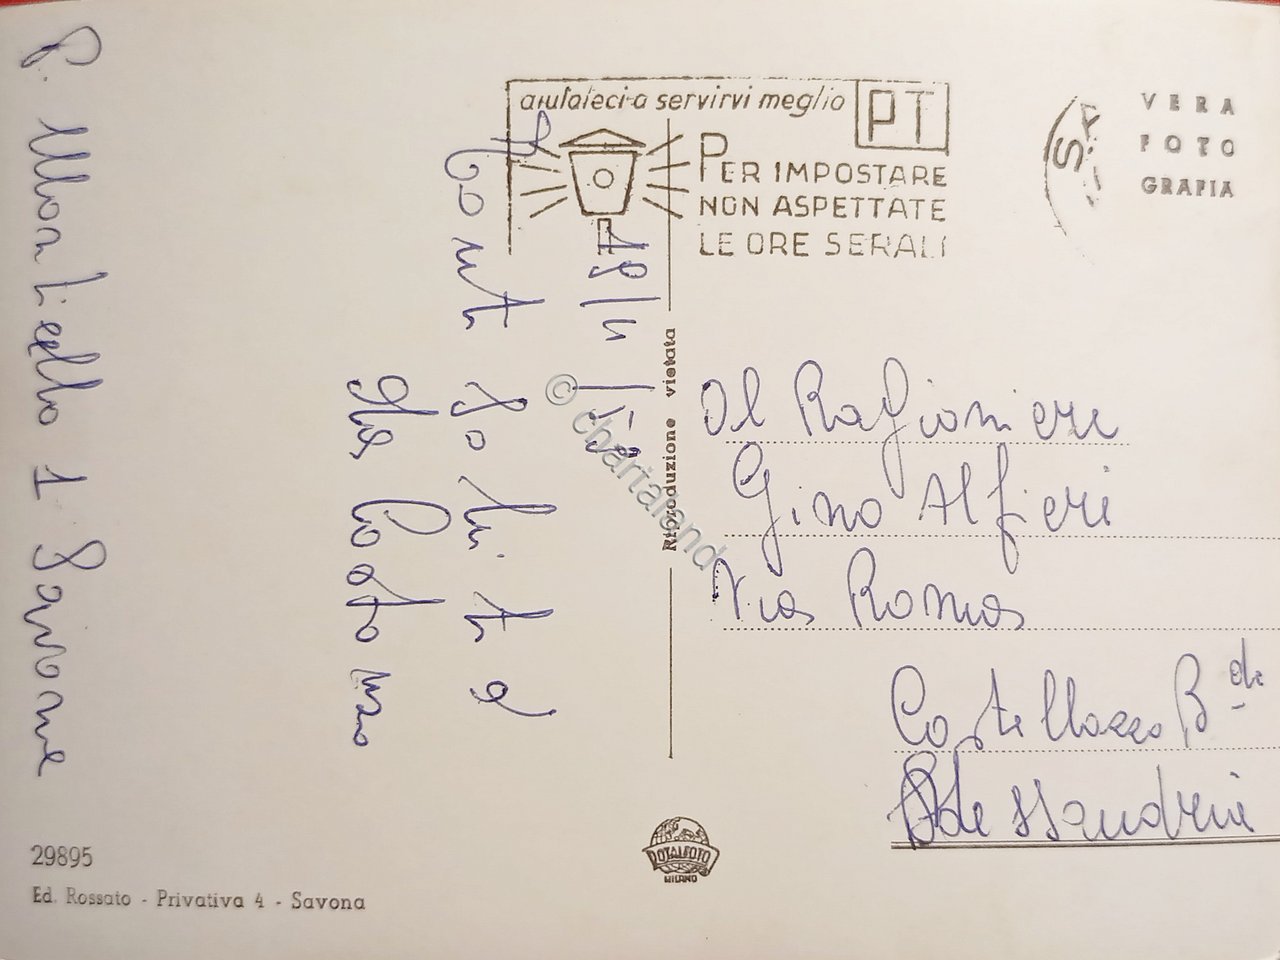 aiutateci a servirvi meglio
PT
PER IMPOSTARE
NON ASPETTATE
LE ORE SERALI
VERA
FOTO
GRAFIA
18/4/
Tonti soliti d
Costanzo
P. Monticello 1 Savona
Riproduzione vietata
© chartaland
Il Ragionieri
Gino Alfieri
Via Roma
Castellazzo B.da
Alessandria
ROTALFOTO
MILANO
29895
Ed. Rossato - Privativa 4 - Savona